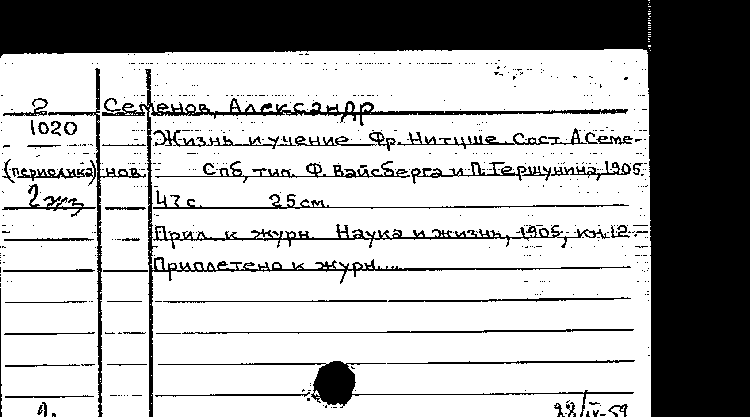 2 Семенов, Александр
1020
Жизнь и учение Фр. Нитцше Сост. А. Семе-
(периодика) нов. Спб, тип. Ф. Вайсберга и П. Гершунина, 1905
2 экз 47 с. 25 см.
Прил. к журн. Наука и жизнь, 1905, кн. 12.
Приплетено к журн....
28/IV-59